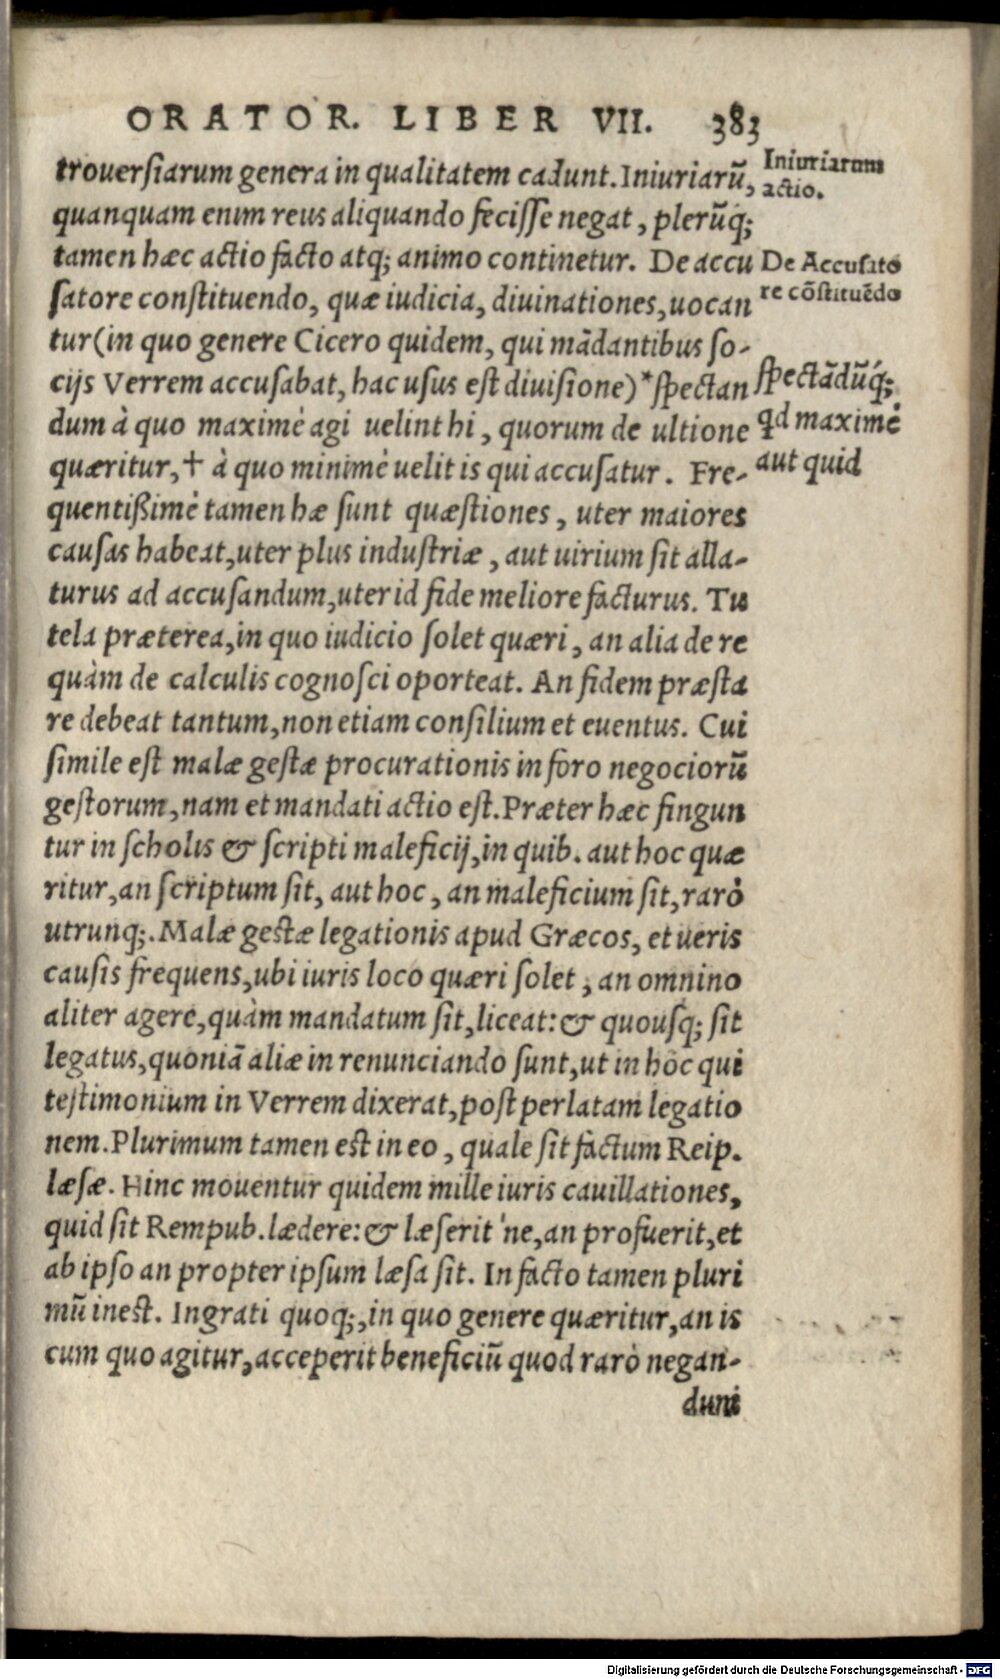 ORATOR. LIBER VII. 383
trouerſiarum genera in qualitatem cadunt. Iniuriarũ,
quanquam enim reus aliquando feciſſe negat, plerũq;
tamen hæc actio facto atq; animo continetur. De accu
ſatore conſtituendo, quæ iudicia, diuinationes, uocan
tur (in quo genere Cicero quidem, qui mãdantibus ſo-
cijs Verrem accuſabat, hac uſus eſt diuiſione) *ſpectan
dum à quo maximè agi uelint hi, quorum de ultione
quæritur, † à quo minimè uelit is qui accuſatur. Fre-
quentißimè tamen hæ ſunt quæſtiones, uter maiores
cauſas habeat, uter plus induſtriæ, aut uirium ſit alla-
turus ad accuſandum, uter id fide meliore facturus. Tu
tela præterea, in quo iudicio ſolet quæri, an alia de re
quàm de calculis cognoſci oporteat. An fidem præſta
re debeat tantum, non etiam conſilium et euentus. Cui
ſimile eſt malæ geſtæ procurationis in foro negociorũ
geſtorum, nam et mandati actio eſt. Præter hæc fingun
tur in ſcholis & ſcripti maleficij, in quib. aut hoc quæ
ritur, an ſcriptum ſit, aut hoc, an maleficium ſit, rarò
utrunq;. Malæ geſtæ legationis apud Græcos, et ueris
cauſis frequens, ubi iuris loco quæri ſolet, an omnino
aliter agere, quàm mandatum ſit, liceat: & quouſq; ſit
legatus, quoniã aliæ in renunciando ſunt, ut in hoc qui
teſtimonium in Verrem dixerat, poſt perlatam legatio
nem. Plurimum tamen eſt in eo, quale ſit factum Reip.
læſæ. Hinc mouentur quidem mille iuris cauillationes,
quid ſit Rempub. lædere: & læſerit 'ne, an profuerit, et
ab ipſo an propter ipſum læſa ſit. In facto tamen pluri
mũ ineſt. Ingrati quoq;, in quo genere quæritur, an is
cum quo agitur, acceperit beneficiũ quod rarò negan-
dum
Iniuriarum
actio.
De Accuſato
re cõſtituẽdo
ſpectãdũq́;
qd maximè
aut quid
Digitalisierung gefördert durch die Deutsche Forschungsgemeinschaft - DFG